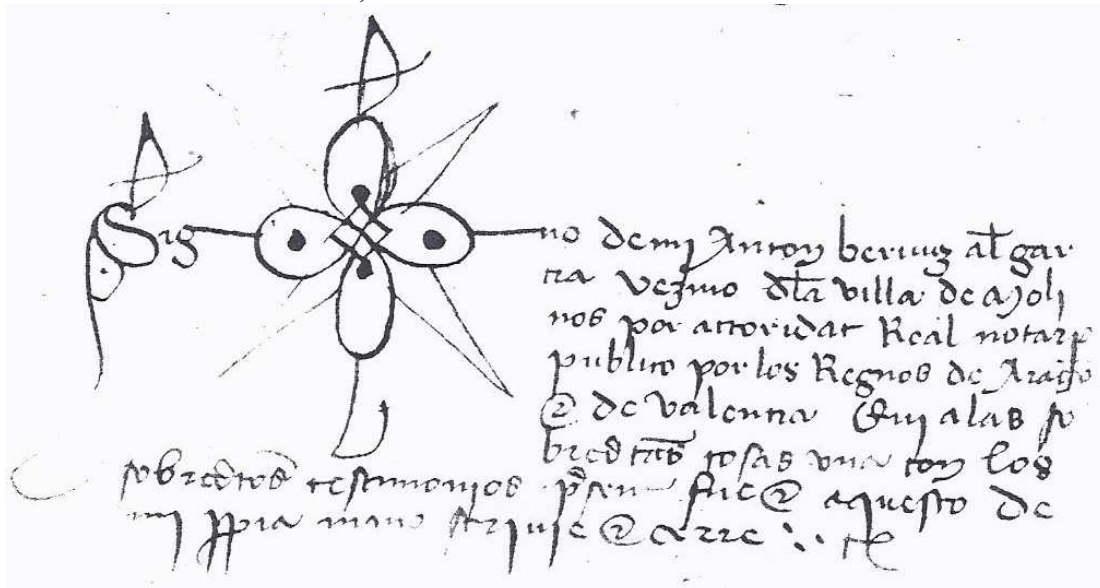 Sig no de mi Anton bernuz al gar
cia vezino dla villa de Moli
nos por actoridat Real notar
publico por los Regnos de Arago
de valencia Qui a las so
bredtas cosas vna con los
sobredtos testimonios psent fue aquesto de
mi ppia mano scriuie